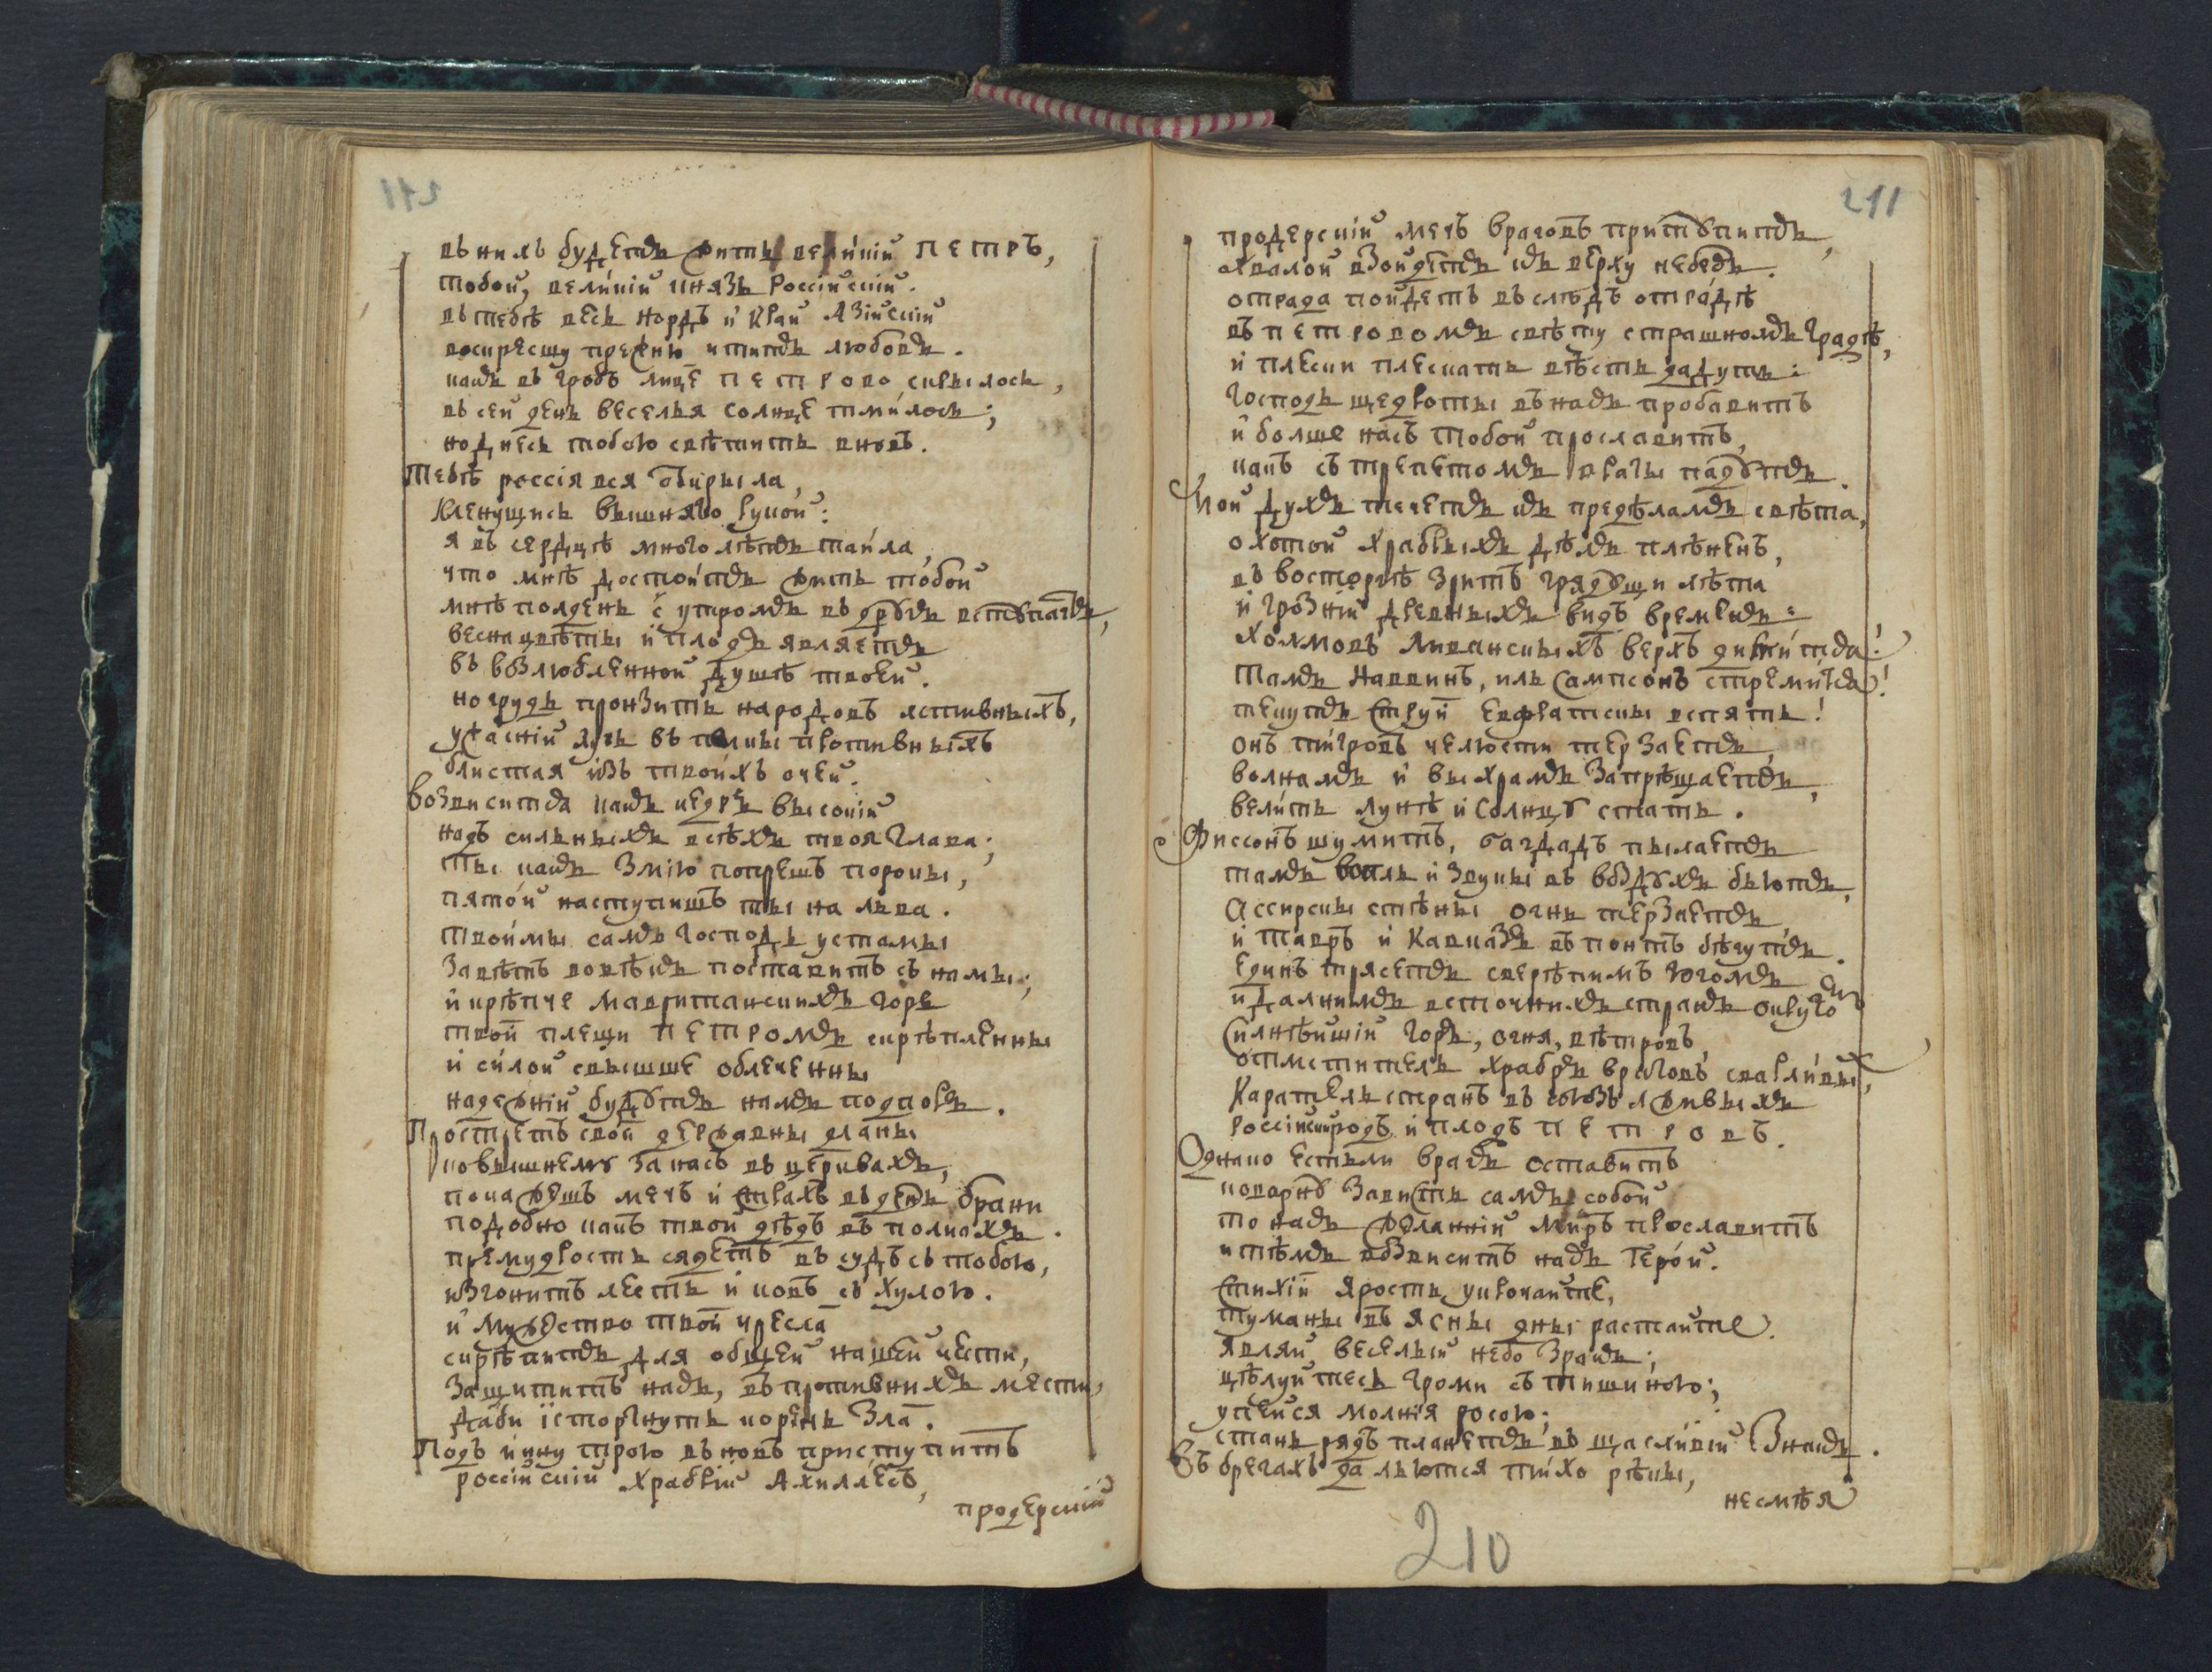 въ нихъ будетъ жить великій ПЕТРЪ,
тобой, великій князь Россійскій.
въ тебѣ весь Нордъ и Край Азійскій
воскресшу прежню чтитъ любовъ.
какъ въ гробъ лице ПЕТРОВО скрылось,
въ сей день веселья солнце тмилось;
но днесь тобою свѣтитъ вновъ.
Тебѣ россія вся открыла,
Клянущись вышняго рукой:
я въ сердцѣ много лѣтъ таила,
что мнѣ достоитъ жить тобой
мнѣ полдень с утромъ вдругъ вступаетъ,
весна цвѣты и плодъ являетъ
въ возлюбленной душѣ твоей.
но грудь пронзитъ народовъ лстивныхъ,
ужасній лучь въ полки противныхъ
блистая изъ твоихъ очей.
Возвисится какъ кедръ высокій
надъ сильныхъ всѣхъ твоя глава;
ты какъ змію попрешъ пороки,
пятой наступишъ ты на льва.
твоимы самъ Господь устамы
завѣтъ вовѣкъ поставитъ съ намы;
и крѣпче Мавритансикхъ горъ
твои плещи ПЕТРОМЪ скрѣпленны
и силой свышше облеченны
надежній будутъ намъ подпоръ.
Прострешъ свои державны длани
ко вышнему за насъ въ церквахъ,
покажешъ мечъ и страхъ въ день брани
подобно какъ твой дѣдъ въ полкахъ.
премудрость сядетъ въ судъ съ тобою,
изгонитъ лесть и ковъ съ хулою.
и мужество твои чресла
скрѣпитъ для общей нашей чести,
защититъ насъ, въ противнихъ мести,
даби исторгнуть корень зла.
Подъ инну трою въновъ приступитъ
россійскій храбрій Ахиллесъ,
продерскій
211
продерскій мечъ враговъ притупитъ,
хвалой взойдетъ къ верху небесъ.
отрада пойдетъ въ слѣдъ отрадѣ
въ ПЕТРОВОМЪ свѣту страшномъ градѣ,
и плески плескать вѣсть дадутъ:
Господь щедроты въ насъ пробавитъ
и болше насъ тобой прославитъ,
какъ съ трепетомъ враги падутъ.
Мой духъ течетъ къ предѣламъ свѣта,
охотой храбрыхъ дѣлъ плѣненъ,
въ восторгѣ зритъ грядущи лѣта
и грозній древныхъ видъ временъ:
Холмовъ Ливанскыхъ верхъ димится!
Тамъ Наввинъ, иль Сампсонъ стремится!
текутъ струи Евфратски вспять!
онъ тигровъ челюсти терзаетъ,
волнамъ и выхрамъ запрѣщаетъ,
велить лунѣ и солнцу стать.
Фиссонъ шумитъ, багдадъ пылаетъ
тамъ вопль и звуки въ воздухъ бьютъ,
Ассирски стѣны огнь терзаетъ
и Тавръ и Кавказъ въ понтъ бѣгутъ.
Единъ трясетъ свѣрѣпимъ югомъ
и далнимъ всточнихъ странъ округомъ
силнѣйшій горъ, огня, вѣтровъ,
отмститель храбръ враговъ сварливы,
Каратель странъ въ союзъ лживыхъ
россійскій родъ и плодъ ПЕТРОВЪ.
Однако естьли врагъ оставитъ
коварну зависть самъ собой
то насъ желанній миръ прославитъ
и тѣмъ возвиситъ насъ Герой.
стихіи ярость укрочайте,
туманы въ ясны дны растайте.
являй веселый небо зракъ;
цѣлуйтесь громи съ тишиною;
упейся молнія росою;
стань рядъ планетъ въ щасливій знакъ.
Въ брегахъ да льются тихо рѣки,
несмѣя
210